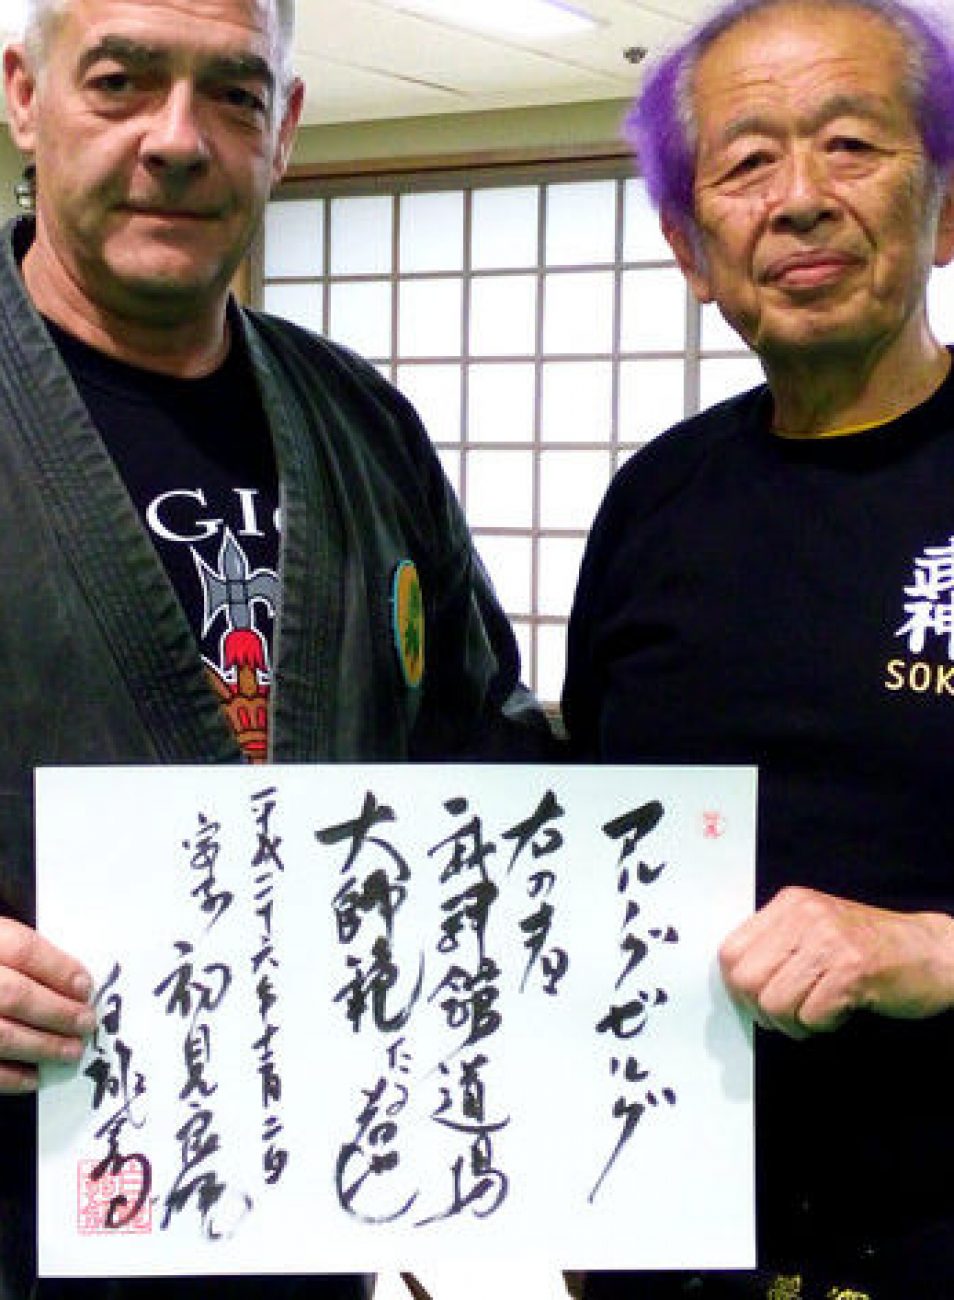 GI
武神
SOK
アルノグゼルグ
右の者
武神館道場
大師範たる者也
平成二十六年十二月二日
宗家 初見良昭
白龍翁